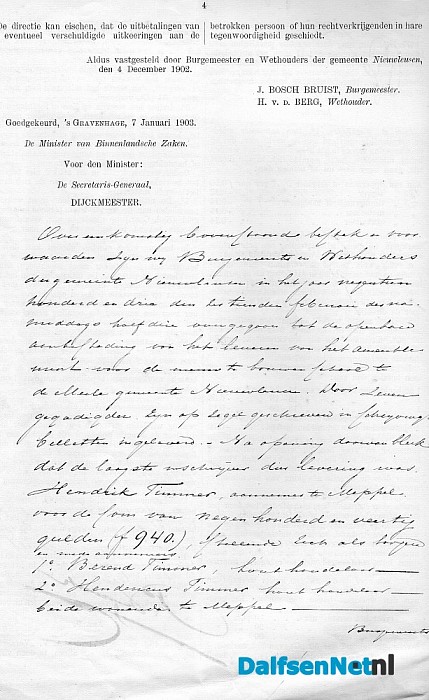 4
De directie kan eischen, dat de uitbetalingen van
eventueel verschuldigde uitkeeringen aan de
betrokken persoon of hun rechtverkrijgenden in hare
tegenwoordigheid geschiedt.
Aldus vastgesteld door Burgemeester en Wethouders der gemeente Nieuwleusen,
den 4 December 1902.
J. BOSCH BRUIST, Burgemeester.
H. V. D. BERG, Wethouder.
Goedgekeurd, 's GRAVENHAGE, 7 Januari 1903.
De Minister van Binnenlandsche Zaken.
Voor den Minister:
De Secretaris-Generaal,
DIJCKMEESTER.
Overeenkomstig bovenstaande bestek en voor
waarden zijn wij Burgemeester en Wethouders
der gemeente Nieuwleusen in het jaar negentien
honderd en drie den februari des na
middags half drie overgegaan tot de openbare
aanbesteding van het leveren van het ameuble
ment voor de nieuw te bouwen school te
de Meele gemeente Nieuwleusen. Door zeven
gegadigden zijn op zegel geschreven
billetten ingeleverd. Na opening daarvan bleek
dat de laagste inschrijver dier levering was
Hendrik Timmer, aannemer te Meppel
voor de som van negenhonderd en veertig
gulden (f 940.), stellende zich als borgen
en mede aannemers
1º. Berend Timmer, houthandelaar
2º Hendericus Timmer houthandelaar
beide wonende te Meppel
Burgemeester
DalfsenNet.nl